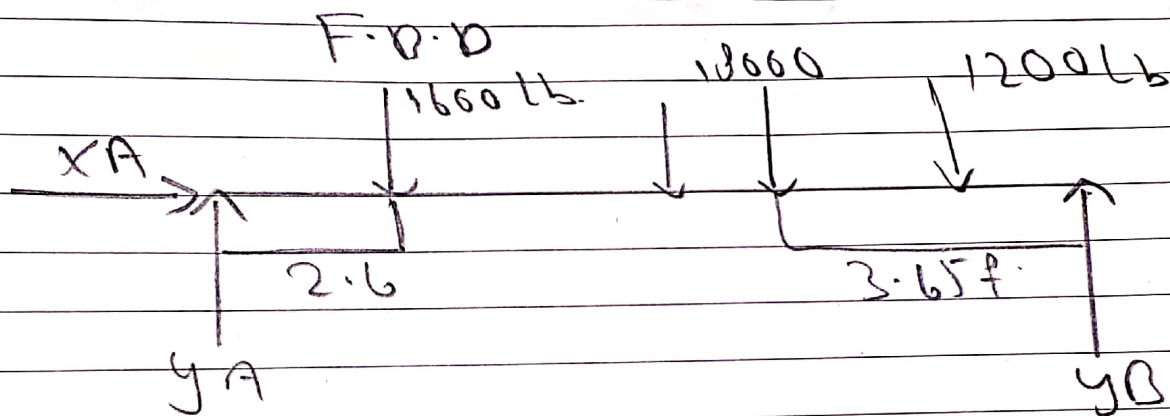 F.B.D
1660 lb. 13660 1200 Lb
XA
2.6 3.65 f.
yA yB